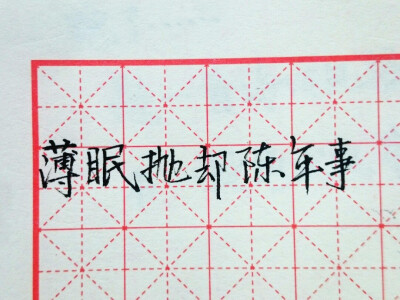 薄眠抛却陈年事